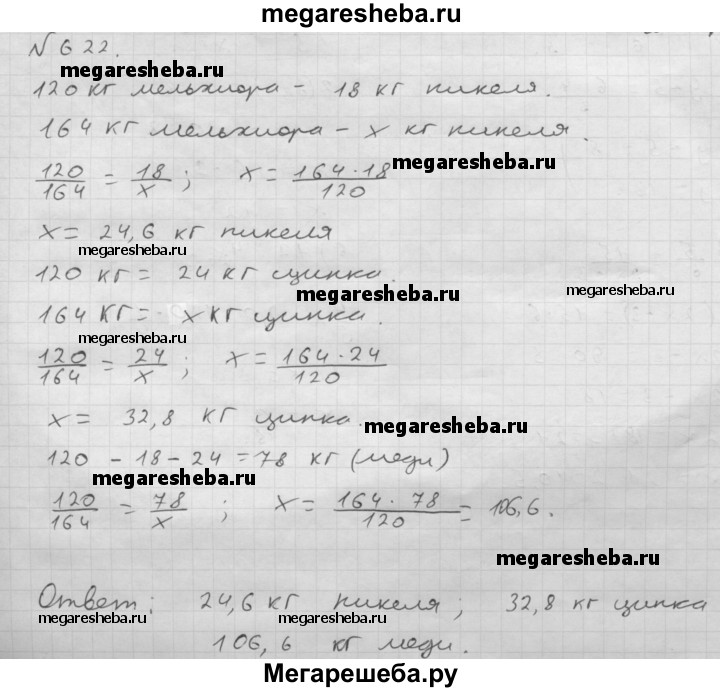 megaresheba.ru
N 622.
megaresheba.ru
120 кг мельхиора - 18 кг никеля.
164 кг мельхиора - x кг никеля.
120/164 = 18/x ; x = 164·18/120
megaresheba.ru
x = 24,6 кг никеля
megaresheba.ru
120 кг = 24 кг цинка.
megaresheba.ru
164 кг = x кг цинка.
megaresheba.ru
120/164 = 24/x ; x = 164·24/120
x = 32,8 кг цинка.
megaresheba.ru
120 - 18 - 24 = 78 кг (меди)
megaresheba.ru
120/164 = 78/x ; x = 164·78/120 = 106,6.
megaresheba.ru
Ответ: 24,6 кг никеля; 32,8 кг цинка
megaresheba.ru
megaresheba.ru
106,6 кг меди.
Мегарешеба.ру